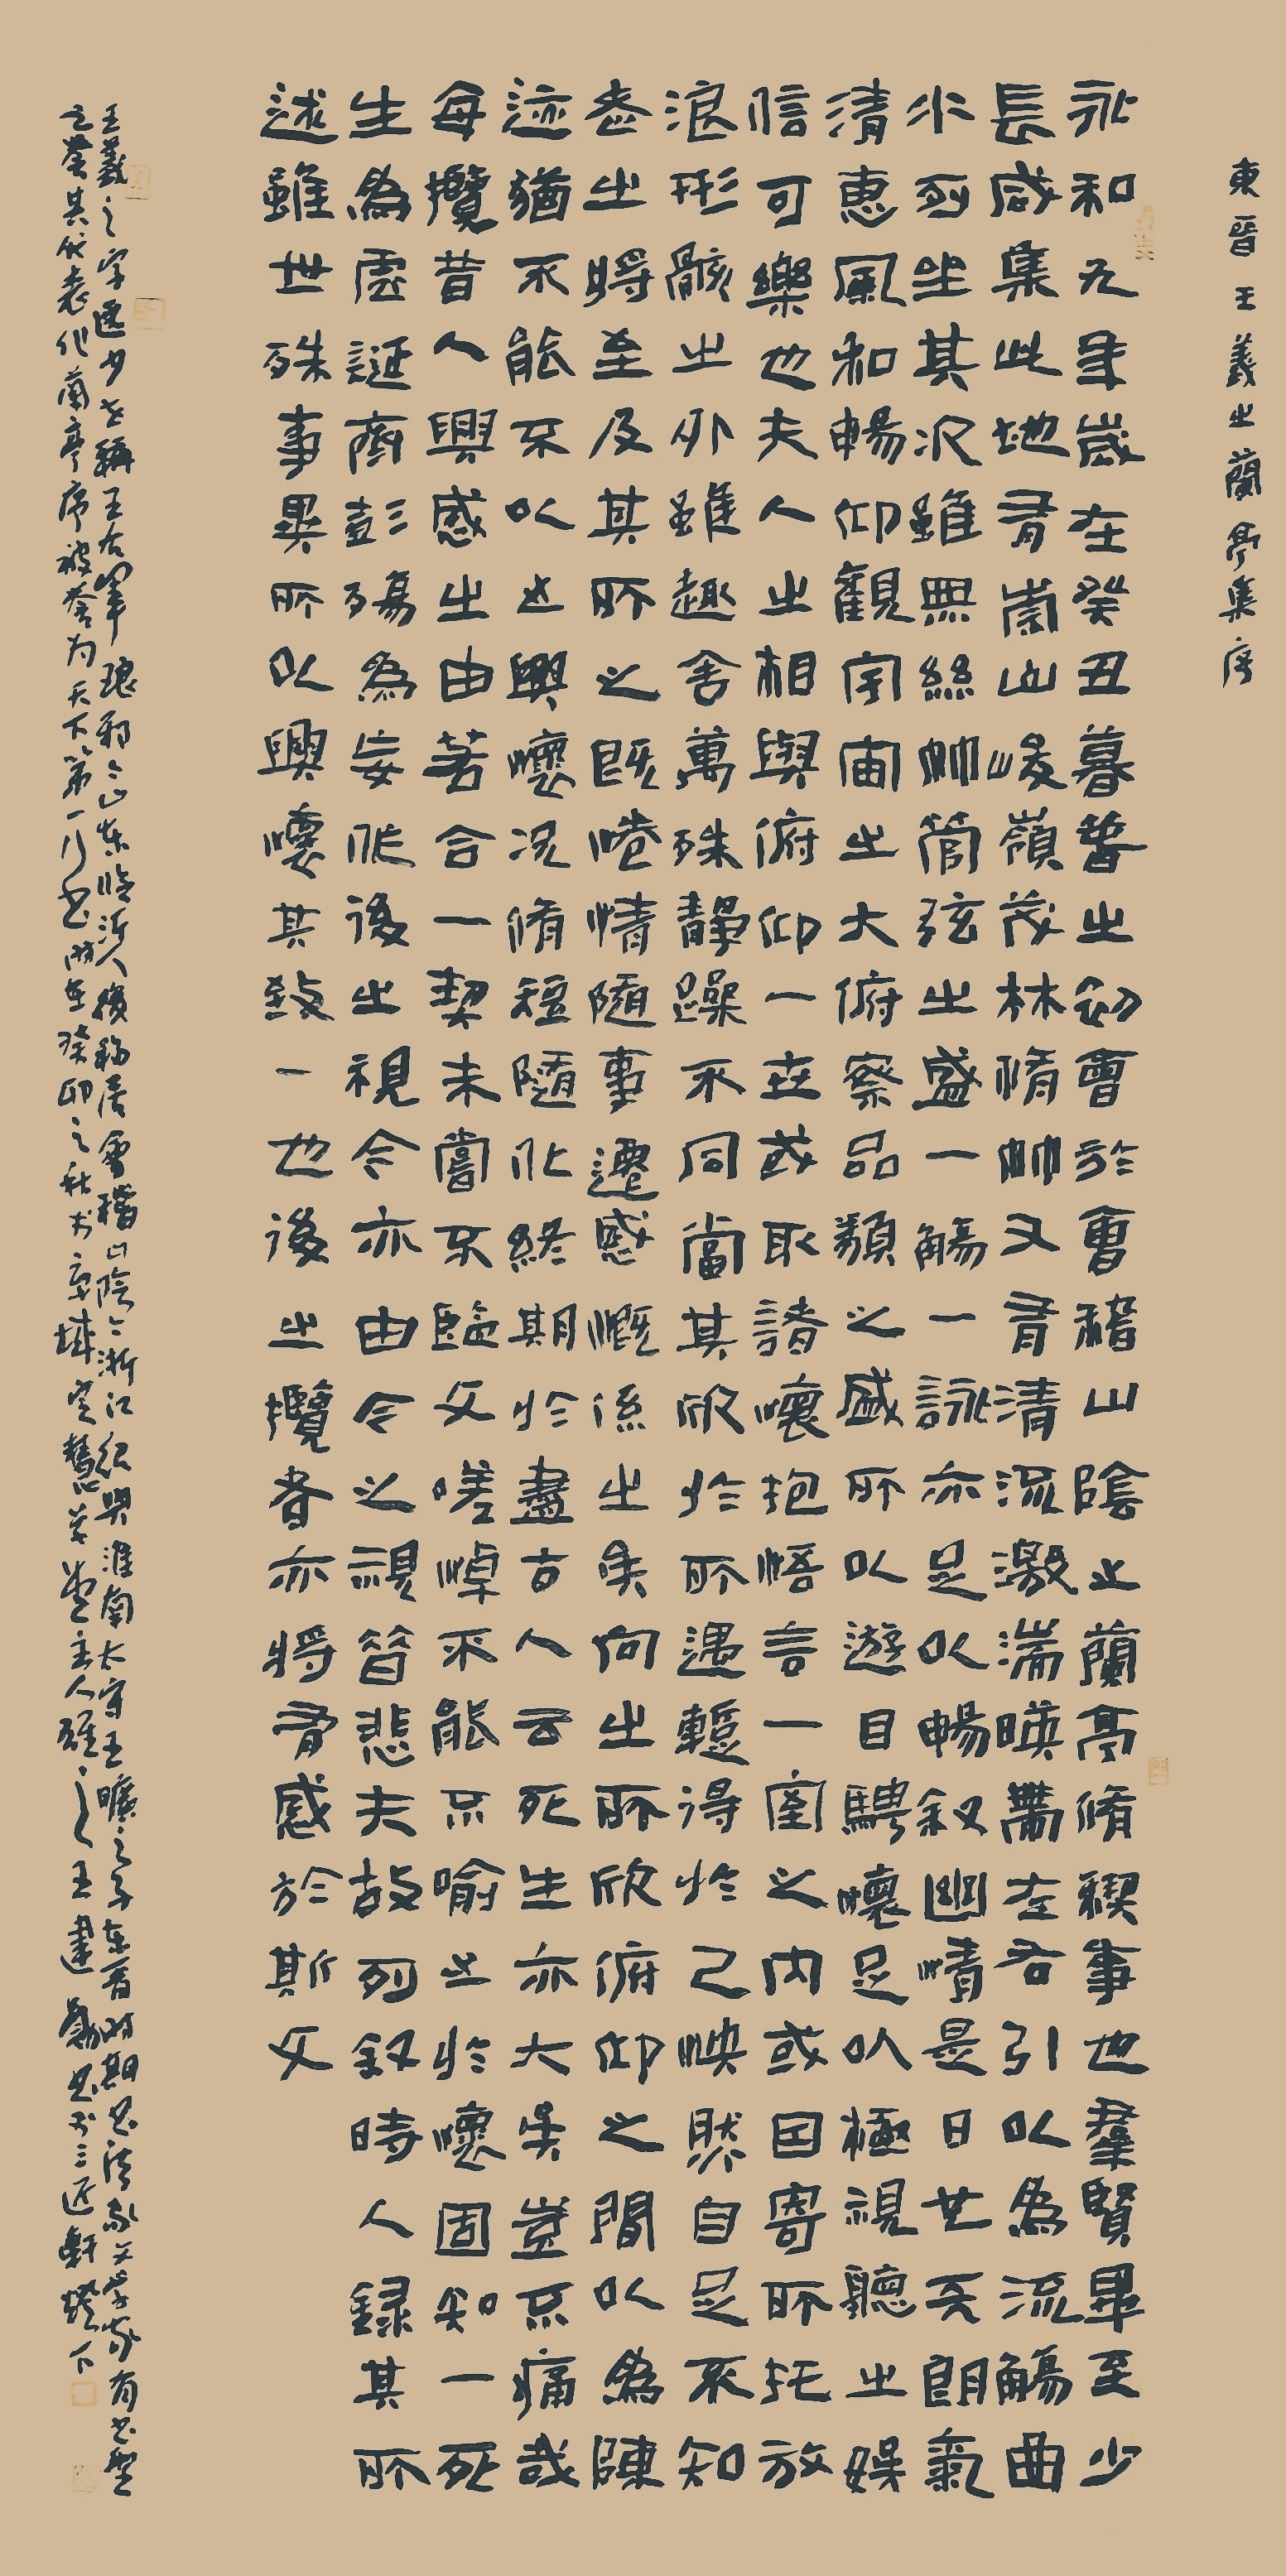 東晉王羲之蘭亭集序
永和九年歲在癸丑暮春之初會於會稽山陰之蘭亭脩禊事也羣賢畢至少
長咸集此地有崇山峻嶺茂林脩竹又有清流激湍暎帶左右引以為流觴曲
水列坐其次雖無絲竹管弦之盛一觴一詠亦足以暢敘幽情是日也天朗氣
清惠風和暢仰觀宇宙之大俯察品類之盛所以遊目騁懷足以極視聽之娛
信可樂也夫人之相與俯仰一世或取諸懷抱悟言一室之內或因寄所托放
浪形骸之外雖趣舍萬殊靜躁不同當其欣於所遇暫得於己怏然自足不知
老之將至及其所之既惓情隨事遷感慨係之矣向之所欣俯仰之間以為陳
迹猶不能不以之興懷況脩短隨化終期於盡古人云死生亦大矣豈不痛哉
每攬昔人興感之由若合一契未嘗不臨文嗟悼不能不喻之於懷固知一死
生為虛誕齊彭殤為妄作後之視今亦由今之視昔悲夫故列敘時人錄其所
述雖世殊事異所以興懷其致一也後之攬者亦將有感於斯文
王羲之字逸少世稱王右軍琅邪今山東臨沂人後移居會稽山陰今浙江紹興淮南太守王曠之子東晉時期書法家文學家有書聖
之譽其代表作蘭亭序被譽為天下第一行書時在癸卯之秋於京城草堂主人王建書於三近軒燈下